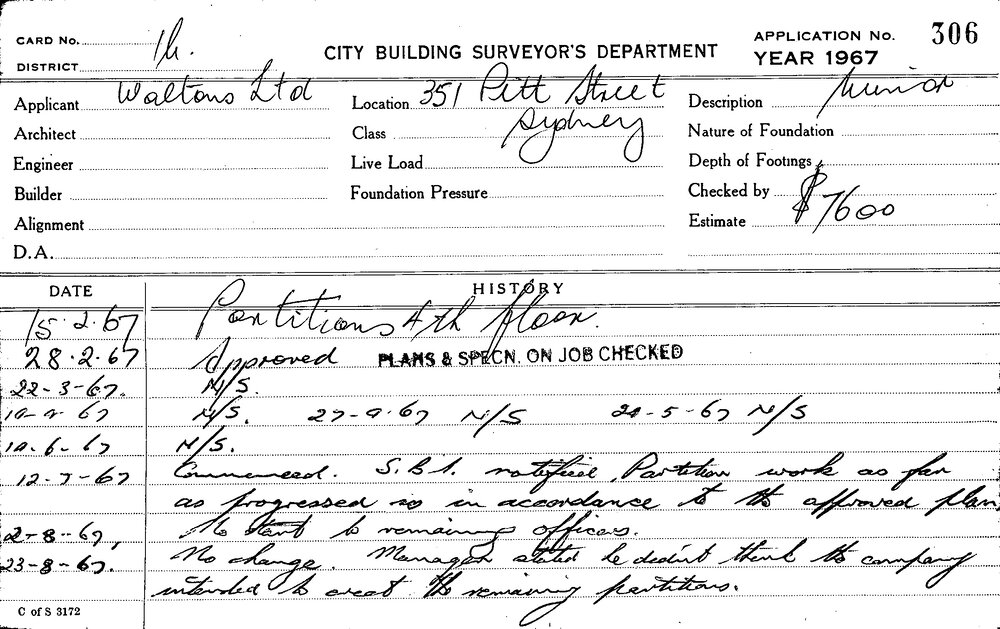 CARD No. 1h.
CITY BUILDING SURVEYOR'S DEPARTMENT
APPLICATION No. 306
DISTRICT
YEAR 1967
Applicant Waltons Ltd
Location 351 Pitt Street
Sydney
Description Minor
Architect
Class
Nature of Foundation
Engineer
Live Load
Depth of Footings
Builder
Foundation Pressure
Checked by
Alignment
Estimate $7600
D.A.
DATE HISTORY
15.2.67 Partitions 4th floor.
28.2.67 Approved PLANS & SPECN. ON JOB CHECKED
22-3-67. N/S.
67 N/S. 67 N/S 5-67 N/S
6-67 N/S.
12-7-67 Commenced. S.B.I. notified, Partition work as far
as progressed is in accordance to the approved plan
2-8-67, No start to remaining offices.
23-8-67. No change. Manager stated he didn't think the company
intended to erect the remaining partitions.
C of S 3172